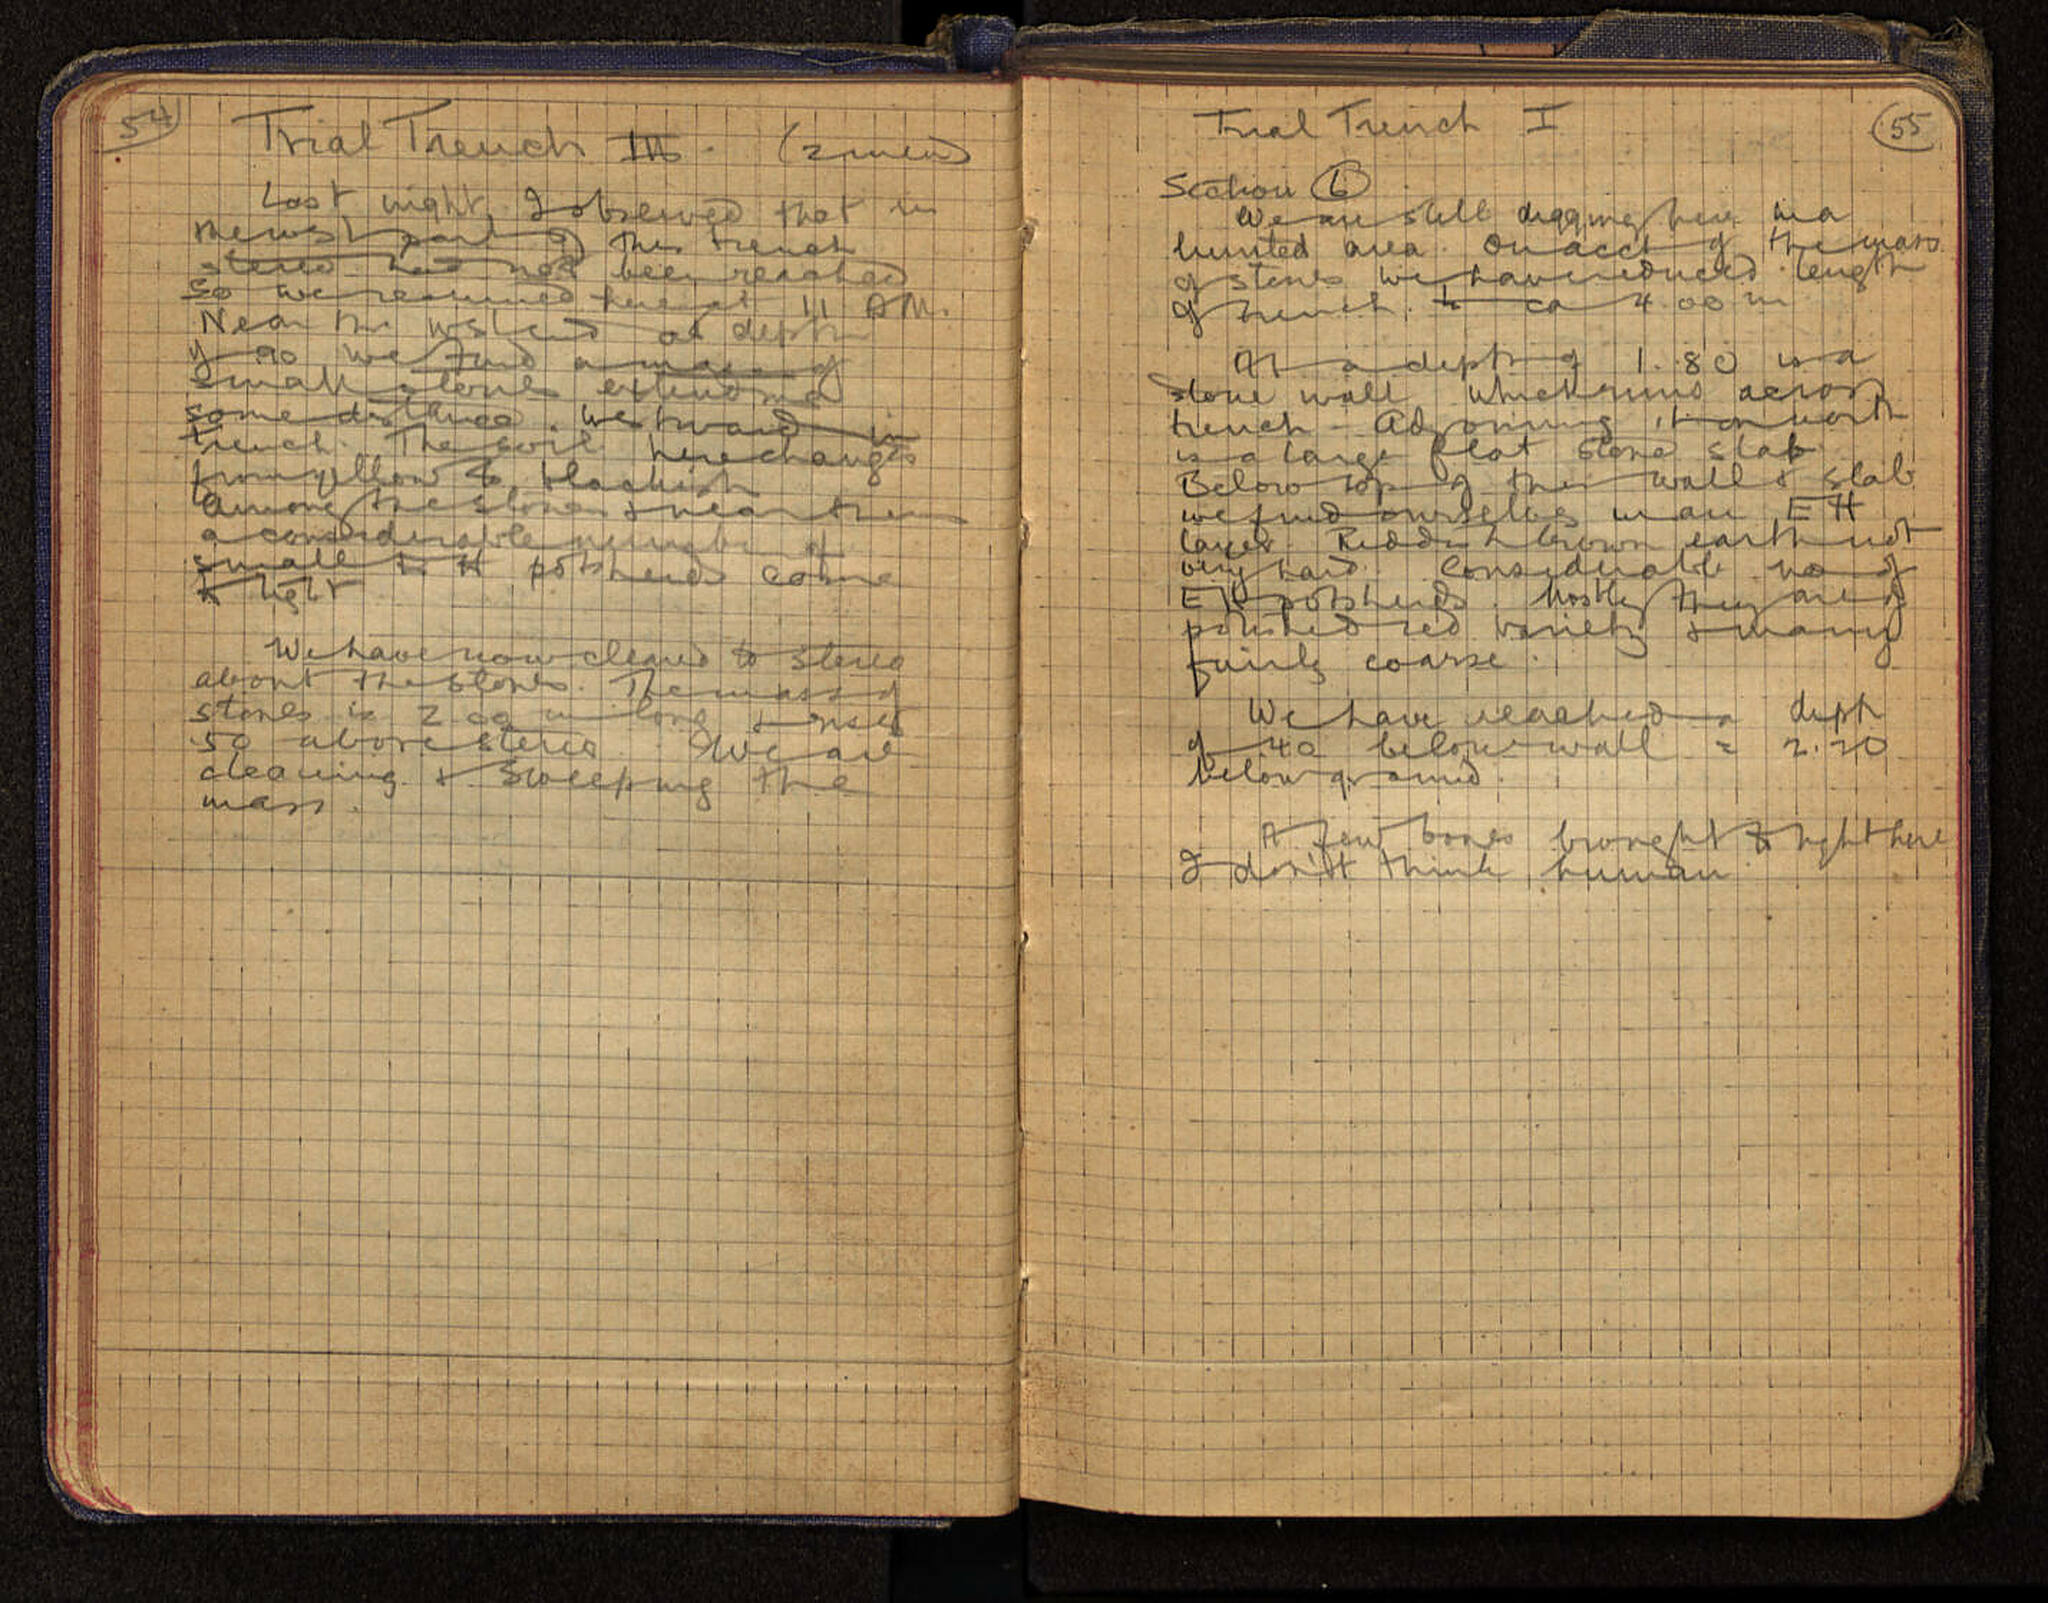 54
Trial Trench III. (2 men)
Last night I observed that in
the west part of this trench
stereo had not been reached
so we resumed here at 11 AM.
Near the west end at depth
of .90 we find a mass of
small stones extending
some distance westward in
trench. The soil here changes
from yellow to blackish
Among the stones & near them
a considerable number of
small EH potsherds came
to light
We have now cleared to stereo
about the stones. The mass of
stones is 2.00 m long & rises
.50 above stereo. We are
cleaning & sweeping the
mass.
55
Trial Trench I
Section 6
We are still digging here in a
limited area. On acct of the mass
of stones we have reduced length
of trench to ca 4.00 m
At a depth of 1.80 is a
stone wall which runs across
trench - Adjoining it on north
is a large flat stone slab
Below top of this wall & slab
we find ourselves in an EH
layer. Reddish brown earth not
very hard. Considerable no of
EH potsherds. Mostly they are of
polished red variety & many
fairly coarse.
We have reached a depth
of .40 below wall = 2.20
below ground.
A few bones brought to light here
I don't think human